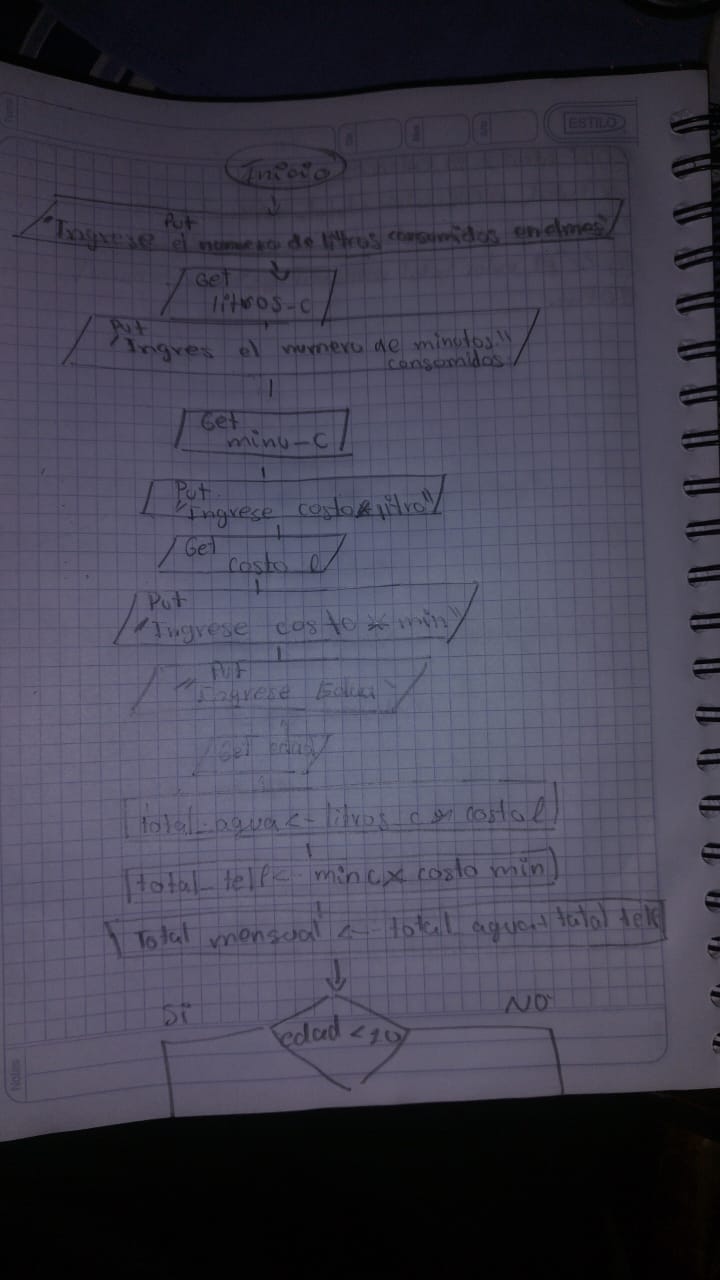 ESTILO
Inicio
Put
"Ingrese el numero de litros consumidos en el mes"
Get
litros-c
Put
"Ingres el numero de minutos"
consumidos
Get
minu-c
Put
"Ingrese costo x litro"
Get
costo l
Put
"Ingrese costo x min"
Put
"Ingrese Edad"
Get edad
total-agua <- litros c x costo l
total_telf <- min c x costo min
Total mensual <- total agua + total telf
Si
NO
edad <
Notes